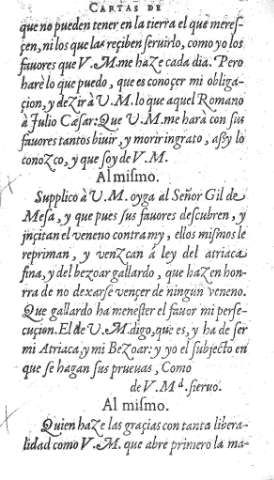 CARTAS DE
que no pueden tener en la tierra el que meres-
çen, ni los que las reciben seruirlo, como yo los
fauores que V.M. me haze cada dia. Pero
harè lo que puedo, que es conoçer mi obliga-
çion, y dezir à V.M. lo que aquel Romano
à Julio Cæsar: Que V.M. me harà con sus
fauores tantos biuir, y morir ingrato, assy lo
conozco, y que soy de V.M.
Al mismo.
Supplico à V.M. oyga al Señor Gil de
Mesa, y que pues sus fauores descubren, y
jnçitan el veneno contra my, ellos mismos le
repriman, y venzcan á ley del atriaca
fina, y del bezoar gallardo, que hazen hon-
rra de no dexarse vençer de ningun veneno.
Que gallardo ha menester el fauor mi perse-
cuçion. El de V.M. digo, que es, y ha de ser
mi Atriaca, y mi Bezoar: y yo el subjecto en
que se hagan sus prueuas, Como
de V.Md. sieruo.
Al mismo.
Quien haze las graçias con tanta libera-
lidad como V.M. que abre primero la ma-